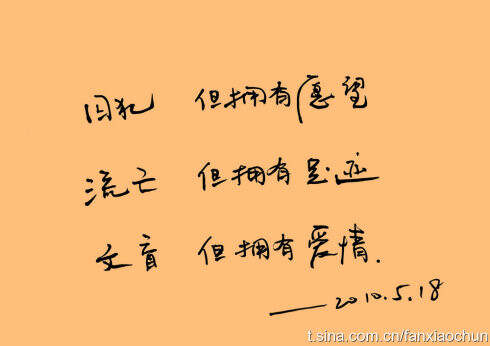 囚犯 但拥有愿望
流亡 但拥有足迹
文盲 但拥有爱情.
——2010.5.18
t.sina.com.cn/fanxiaochun